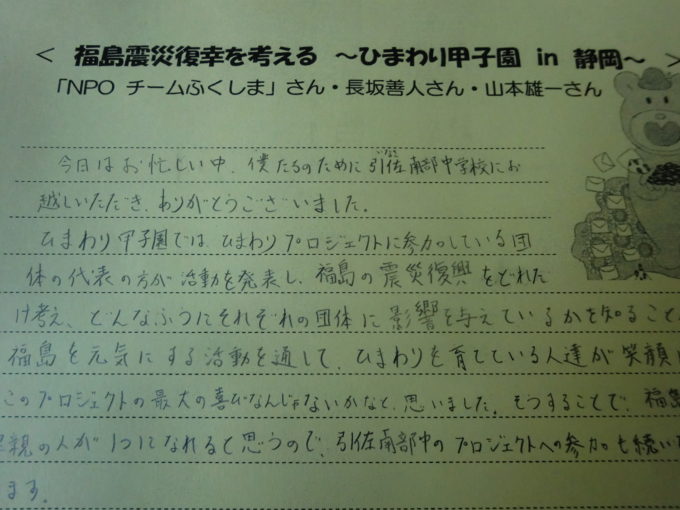 ＜ 福島震災復幸を考える ～ひまわり甲子園 in 静岡～ ＞
「NPO チームふくしま」さん・長坂善人さん・山本雄一さん
今日はお忙しい中、僕たちのために引佐南部中学校にお
越しいただき、ありがとうございました。
ひまわり甲子園では、ひまわりプロジェクトに参加している団
体の代表の方が活動を発表し、福島の震災復興をどれだ
け考え、どんなふうにそれぞれの団体に影響を与えているかを知ること
福島を元気にする活動を通して、ひまわりを育てている人達が笑顔に
このプロジェクトの最大の喜びなんじゃないかなと、思いました。そうすることで、福島
親の人が1つになれると思うので、引佐南部中のプロジェクトへの参加も続い
ます。